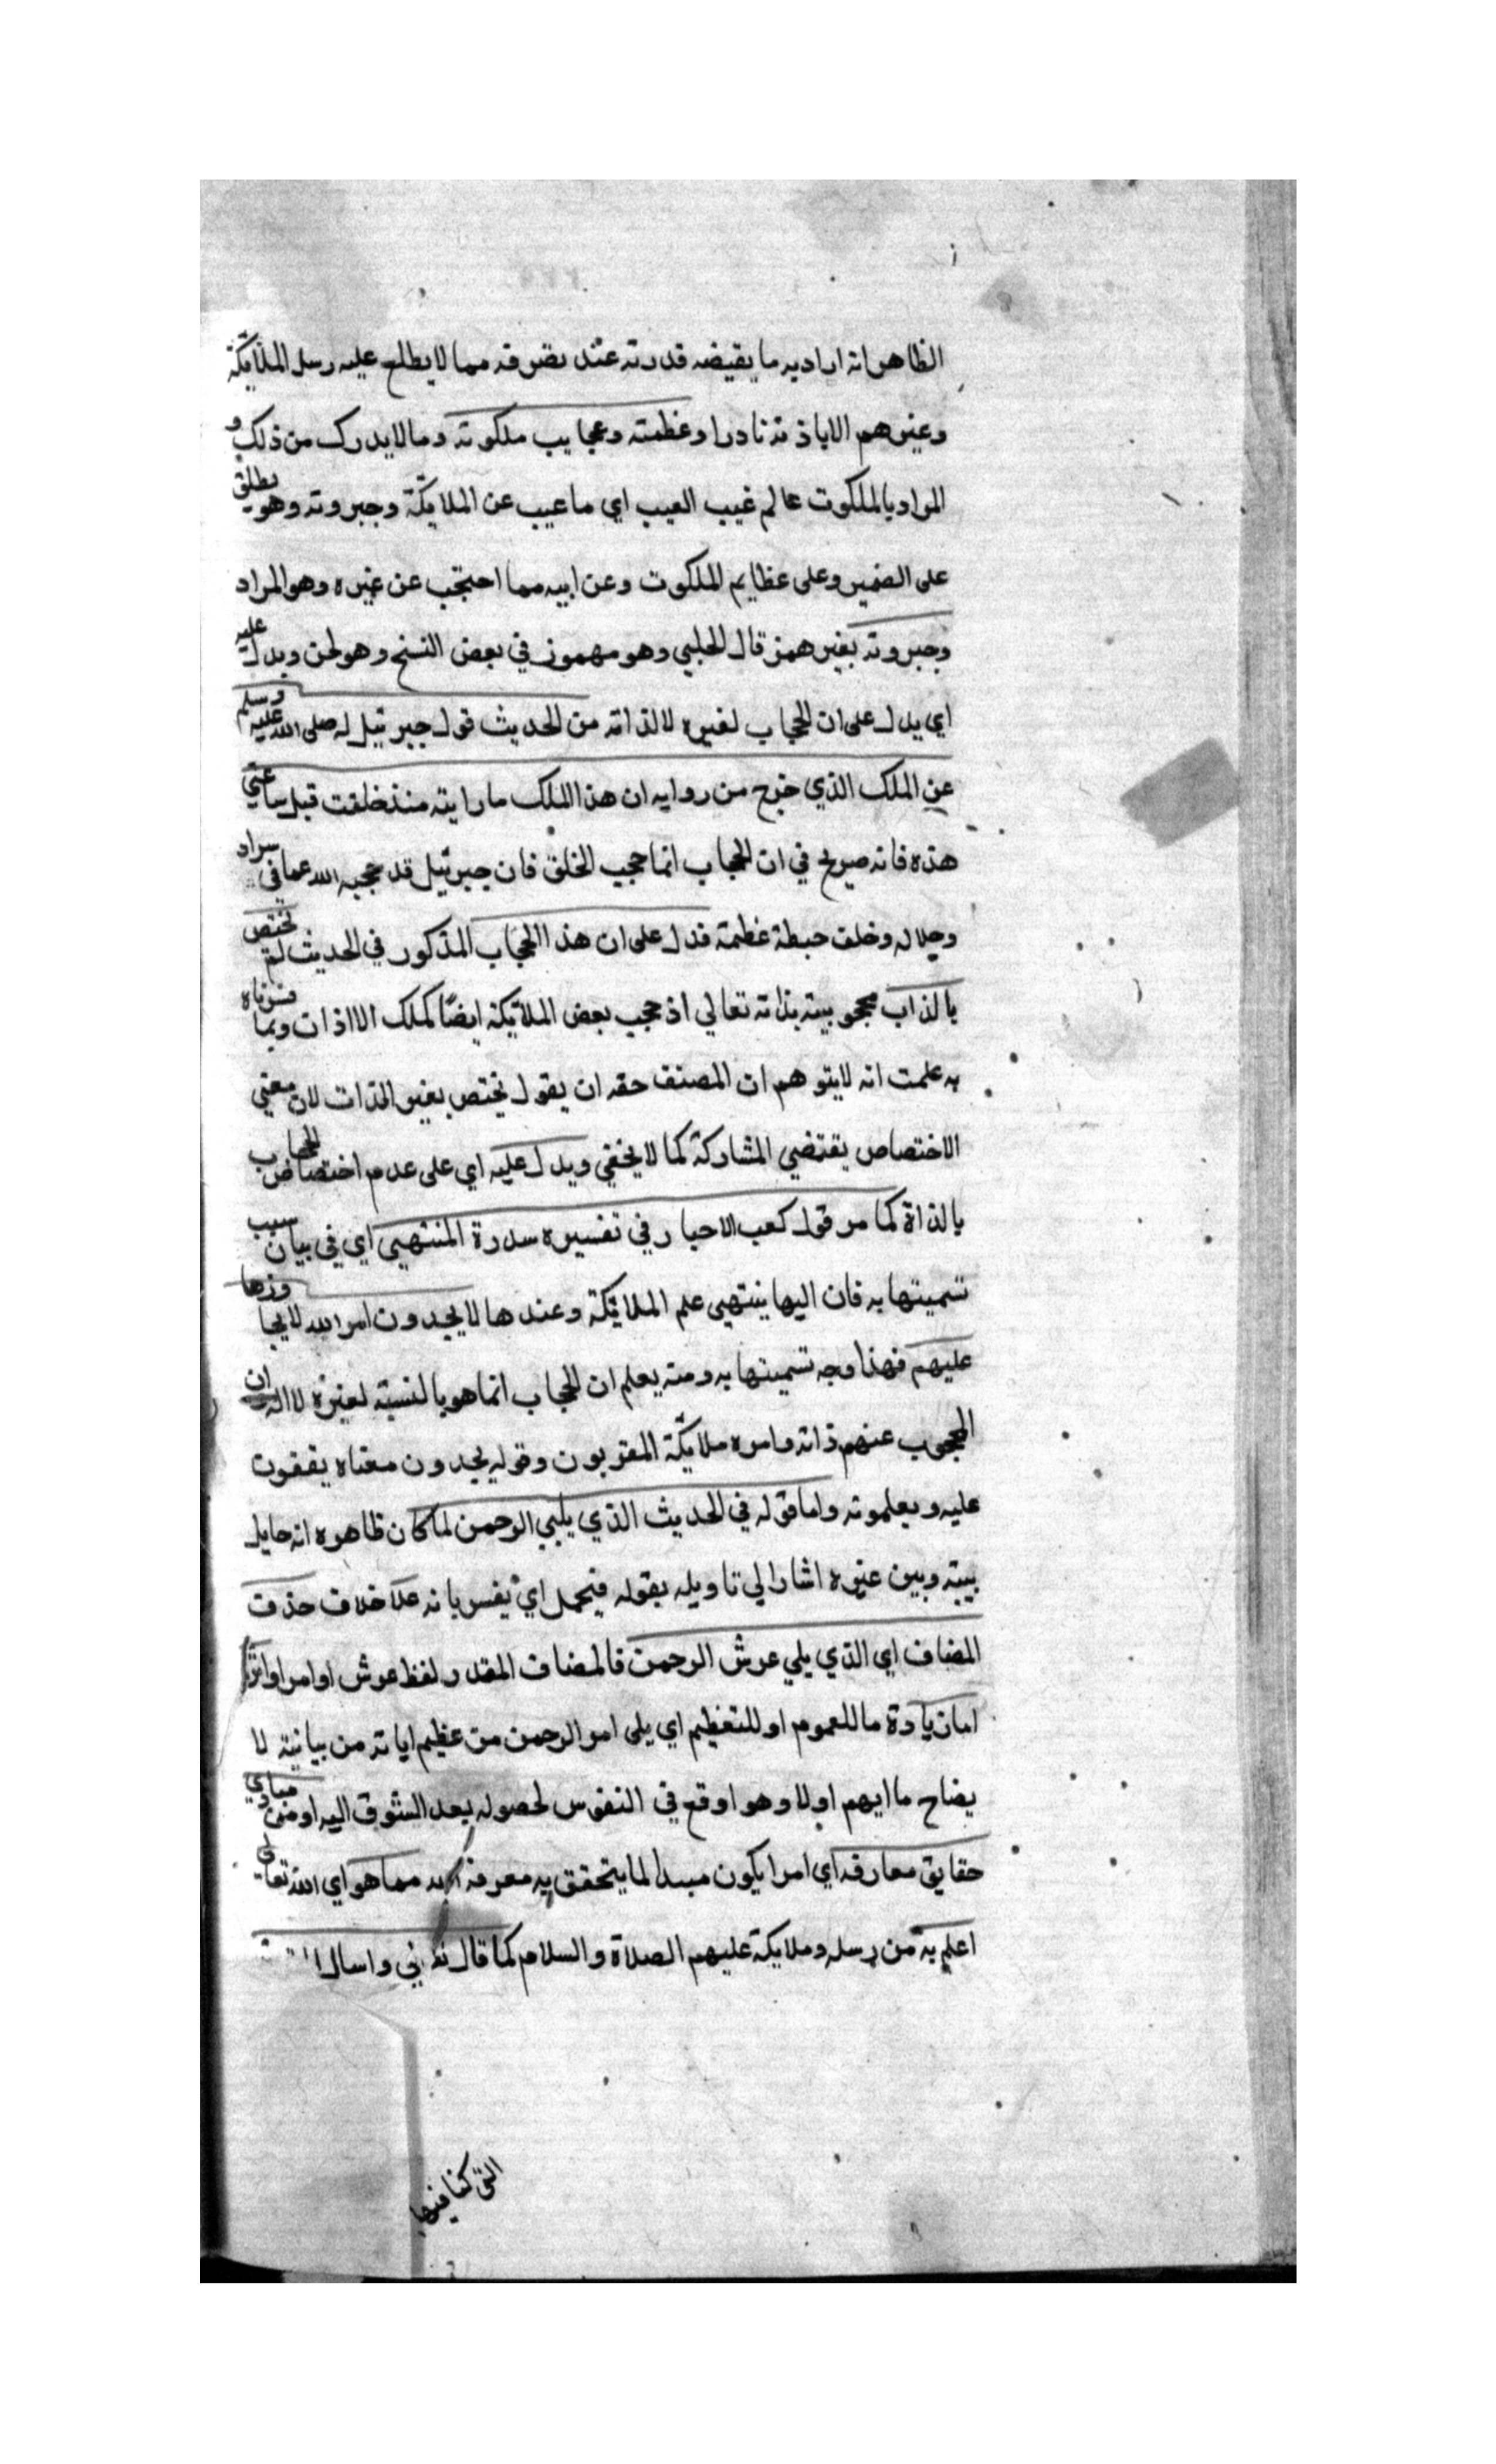 الظاهر انه اراد به ما يقيضه قدرته عند تصرفه مما لا يطلع عليه رسل الملائكة
وغيرهم الا باذنه نادرا وعظمته وعجايب ملكوته وما لا يدرك من ذلك و
المراد بالملكوت عالم غيب الغيب اي ما غيب عن الملايكة وجبروته وهو يطلق
على الضمير وعلى عظايم الملكوت وعن ابيه مما احتجب عن غيره وهو المراد
وجبروته بغير همز قال الحلبي وهو مهموز في بعض النسخ وهو لحن ويدل عليه
اي يدل على ان الحجاب لغيره لا لذاته من الحديث قول جبرئيل له صلى الله عليه وسلم
عن الملك الذي خرج من روايه ان هذا الملك ما رايته منذ خلقت قبل ساعتي
هذه فانه صريح في ان الحجاب انما حجب الخلق فان جبرئيل قد حجبه الله عما في سراد
وجلاله وخلف حيطة عظمته فدل على ان هذا الحجاب المذكور في الحديث لم تختص
بالذات محجوبيته بذاته تعالي اذ حجب بعض الملائيكة ايضا كملك الااذات وبما قررناه
به علمت انه لا يتوهم ان المصنف حقه ان يقول يختص بغير الذات لان معني
الاختصاص يقتضي المشاركة كما لا يخفي ويدل عليه اي على عدم اختصاص الحجاب
بالذاة كما مر قول كعب الاحبار في تفسيره سدرة المنتهيي اي في بيان سبب
تسميتها به فان اليها ينتهي علم الملائيكة وعندها لا يجدون امر الله لا يجاوزها
عليهم فهذا وجه تسميتها به ومنه يعلم ان الحجاب انما هو بالنسبة لغيره لا اله ان
المحجوب عنهم ذاته وامره ملايكة المقربون وقوله يجدون معناه يقفون
عليه ويعلمونه واما قوله في الحديث الذي يلبي الرحمن لما كان ظاهره انه حايل
بينه وبين غيره اشار الي تاويله بقوله فيحمل اي يفسر بانه علا خلاف حذف
المضاف اي الذي يلي عرش الرحمن فالمضاف المقدر لفظ عرش او امر او
اما زيادة ما للعموم او للتعظيم اي يلي امر الرحمن من عظيم اياته من بيانية لا
يضاح ما ابهم اولا وهو اوقع في النفوس لحصوله بعد الشوق اليه او من مبادي
حقايق معارفه اي امرا يكون مبدا لما يتحقق به معرفة الله مما هو اي الله تعالى
اعلم به من رسله وملايكة عليهم الصلاة والسلام كما قال واسال
التي كنا فيها